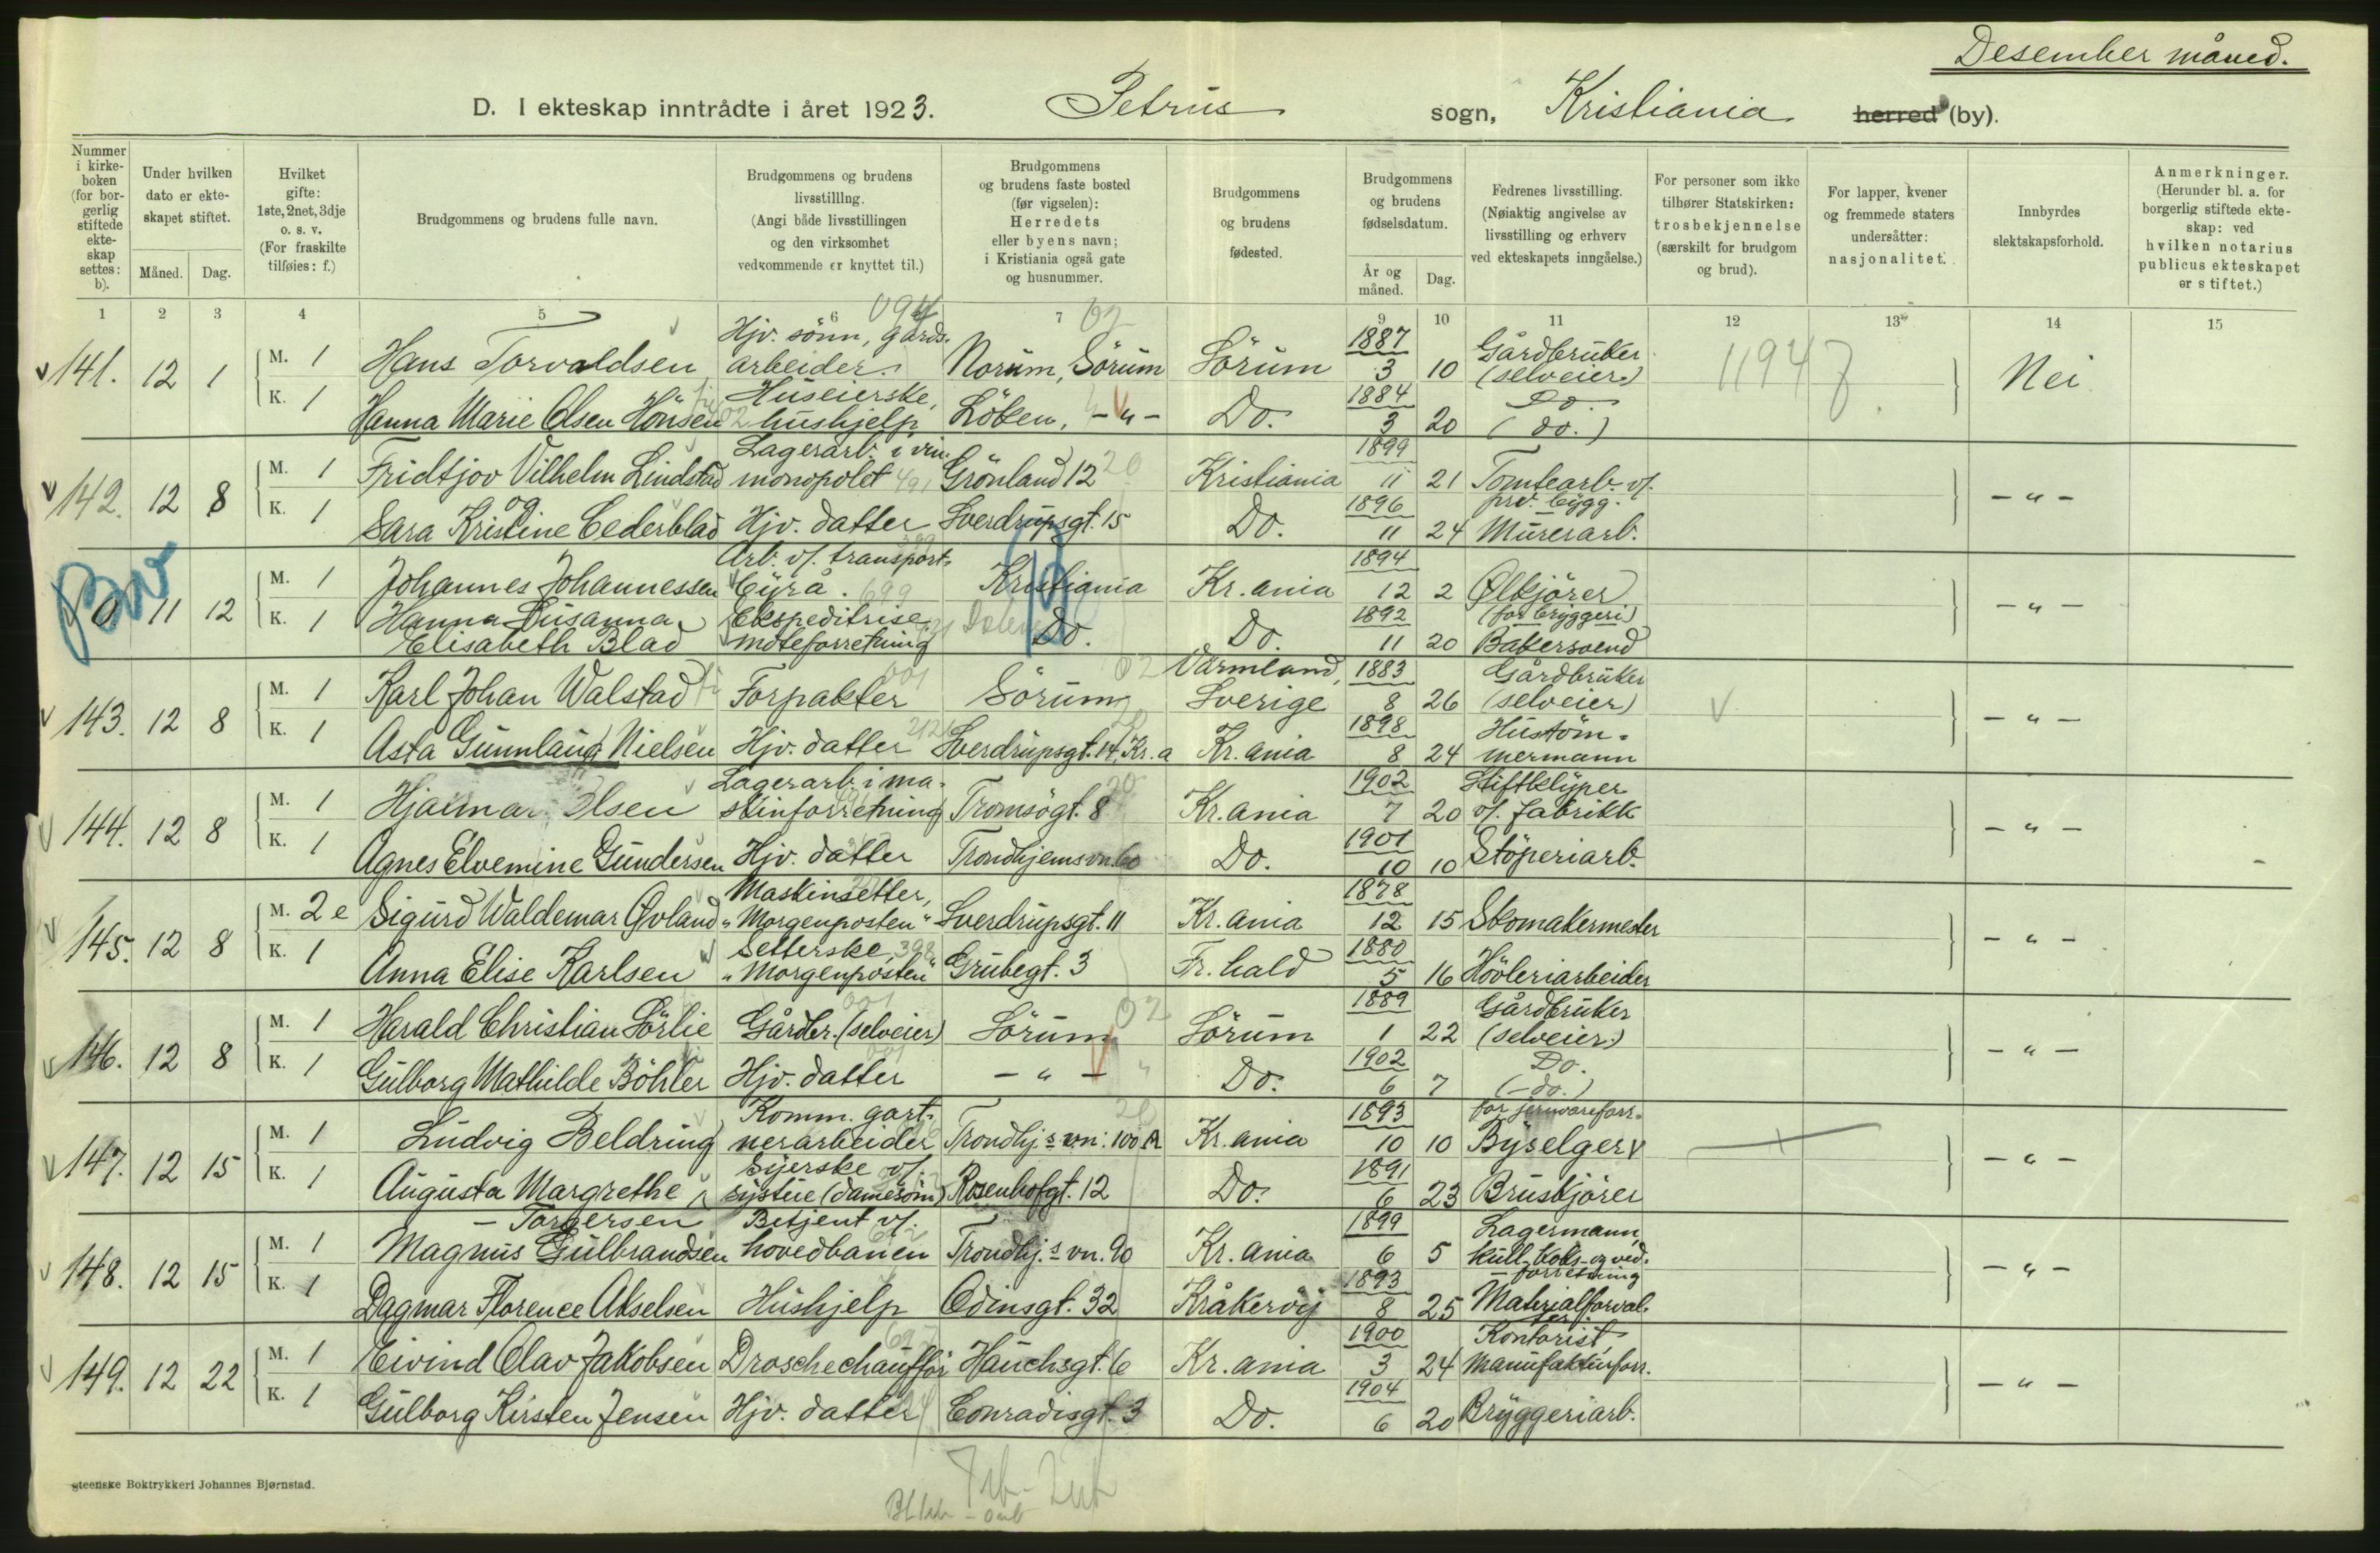 Desember måned.
D. I ekteskap inntrådte i året 1923. Petrus sogn, Kristiania herred (by).
Nummer i kirke-boken (for bor-gerlig stiftede ekte-skap settes: b).
Under hvilken dato er ekte-skapet stiftet.
Måned. Dag.
Hvilket gifte: 1ste, 2net, 3dje o. s. v. (For fraskilte tilføies: f.)
Brudgommens og brudens fulle navn.
Brudgommens og brudens livsstilling. (Angi både livsstillingen og den virksomhet vedkommende er knyttet til.)
Brudgommens og brudens faste bosted (før vigselen): Herredets eller byens navn; i Kristiania også gate og husnummer.
Brudgommens og brudens fødested.
Brudgommens og brudens fødselsdatum.
År og måned. Dag.
Fedrenes livsstilling. (Nøiaktig angivelse av livsstilling og erhverv ved ekteskapets inngåelse.)
For personer som ikke tilhører Statskirken: trosbekjennelse (særskilt for brudgom og brud).
For lapper, kvener og fremmede staters undersåtter: nasjonalitet.
Innbyrdes slektskapsforhold.
Anmerkninger. (Herunder bl. a. for borgerlig stiftede ekte-skap: ved hvilken notarius publicus ekteskapet er stiftet.)
1 2 3 4 5 6 7 9 10 11 12 13 14 15
141. 12 1 M. 1 Hans Torvaldsen Hjv. sönn, gårds-arbeider. Norum, Sörum Sörum 1887 3 10 Gårdbruker (selveier) Nei
K. 1 Hanna Marie Olsen Hönsen Huseierske, hushjelp Löken, -"- Do. 1884 3 20 Do (do.)
142. 12 8 M. 1 Fridtjov Vilhelm Lindstad Lagerarb. i vin-monopolet Grönland 12 Kristiania 1899 11 21 Tomtearb. v/. prv. bygg. -"-
K. 1 og Sara Kristine Cederblad Hjv. datter Sverdrupsgt. 15 Do. 1896 11 24 Murerarb.
0 11 12 M. 1 Johannes Johannessen Arb. v/. transport-byrå. Kristiania Kr.ania 1894 12 2 Ølkjörer (for bryggeri) -"-
K. 1 Hanna Susanna Elisabeth Blad Ekspeditrise moteforretning Do. Do. 1892 11 20 Bakersvend
143. 12 8 M. 1 Karl Johan Walstad Forpakter Sörum Värmland, Sverige 1883 8 26 Gårdbruker (selveier) -"-
K. 1 Asta Gunnlaug Nielsen Hjv. datter Sverdrupsgt. 14, Kr.a Kr.ania 1898 8 24 Hustöm-mermann
144. 12 8 M. 1 Hjalmar Olsen Lagerarb. i ma-skinforretning Tromsögt. 8 Kr.ania 1902 7 20 Stiftklyper v/. fabrikk -"-
K. 1 Agnes Elvemine Gundersen Hjv. datter Trondhjemsvn. 60 Do. 1901 10 10 Stöperiarb.
145. 12 8 M. 2e Sigurd Waldemar Øvland Maskinsetter, "Morgenposten" Sverdrupsgt. 11 Kr.ania 1878 12 15 Skomakermester -"-
K. 1 Anna Elise Karlsen Setterske, "Morgenposten" Grubegt. 3 Fr.hald 1880 5 16 Hövleriarbeider
146. 12 8 M. 1 Harald Christian Sörlie Gårdbr. (selveier) Sörum Sörum 1889 1 22 Gårdbruker (selveier) -"-
K. 1 Gulborg Mathilde Böhler Hjv. datter -"- Do. 1902 6 7 Do. (-do.)
147. 12 15 M. 1 Ludvig Beldring Komm. gart-nerarbeider Trondhj.s vn. 100 A Kr.ania 1893 10 10 for jernvareforr. Byselger -"-
K. 1 Augusta Margrethe - Torgersen Syerske v/. systue (damesöm) Rosenhofgt. 12 Do. 1891 6 23 Bruskjörer
148. 12 15 M. 1 Magnus Gulbrandsen Betjent v/. hovedbanen Trondhj.s vn. 90 Kr.ania 1899 6 5 Lagermann, kull-, koks- og ved-forretning -"-
K. 1 Dagmar Florence Akselsen Hushjelp Odinsgt. 32 Kråkeröy 1893 8 25 Materialforval-ter.
149. 12 22 M. 1 Eivind Olav Jakobsen Droschechaufför Hauchsgt. 6 Kr.ania 1900 3 24 Kontorist, manufakturforr. -"-
K. 1 Gulborg Kirsten Jensen Hjv. datter Conradisgt. 3 Do. 1904 6 20 Bryggeriarb.
steenske Boktrykkeri Johannes Bjørnstad.